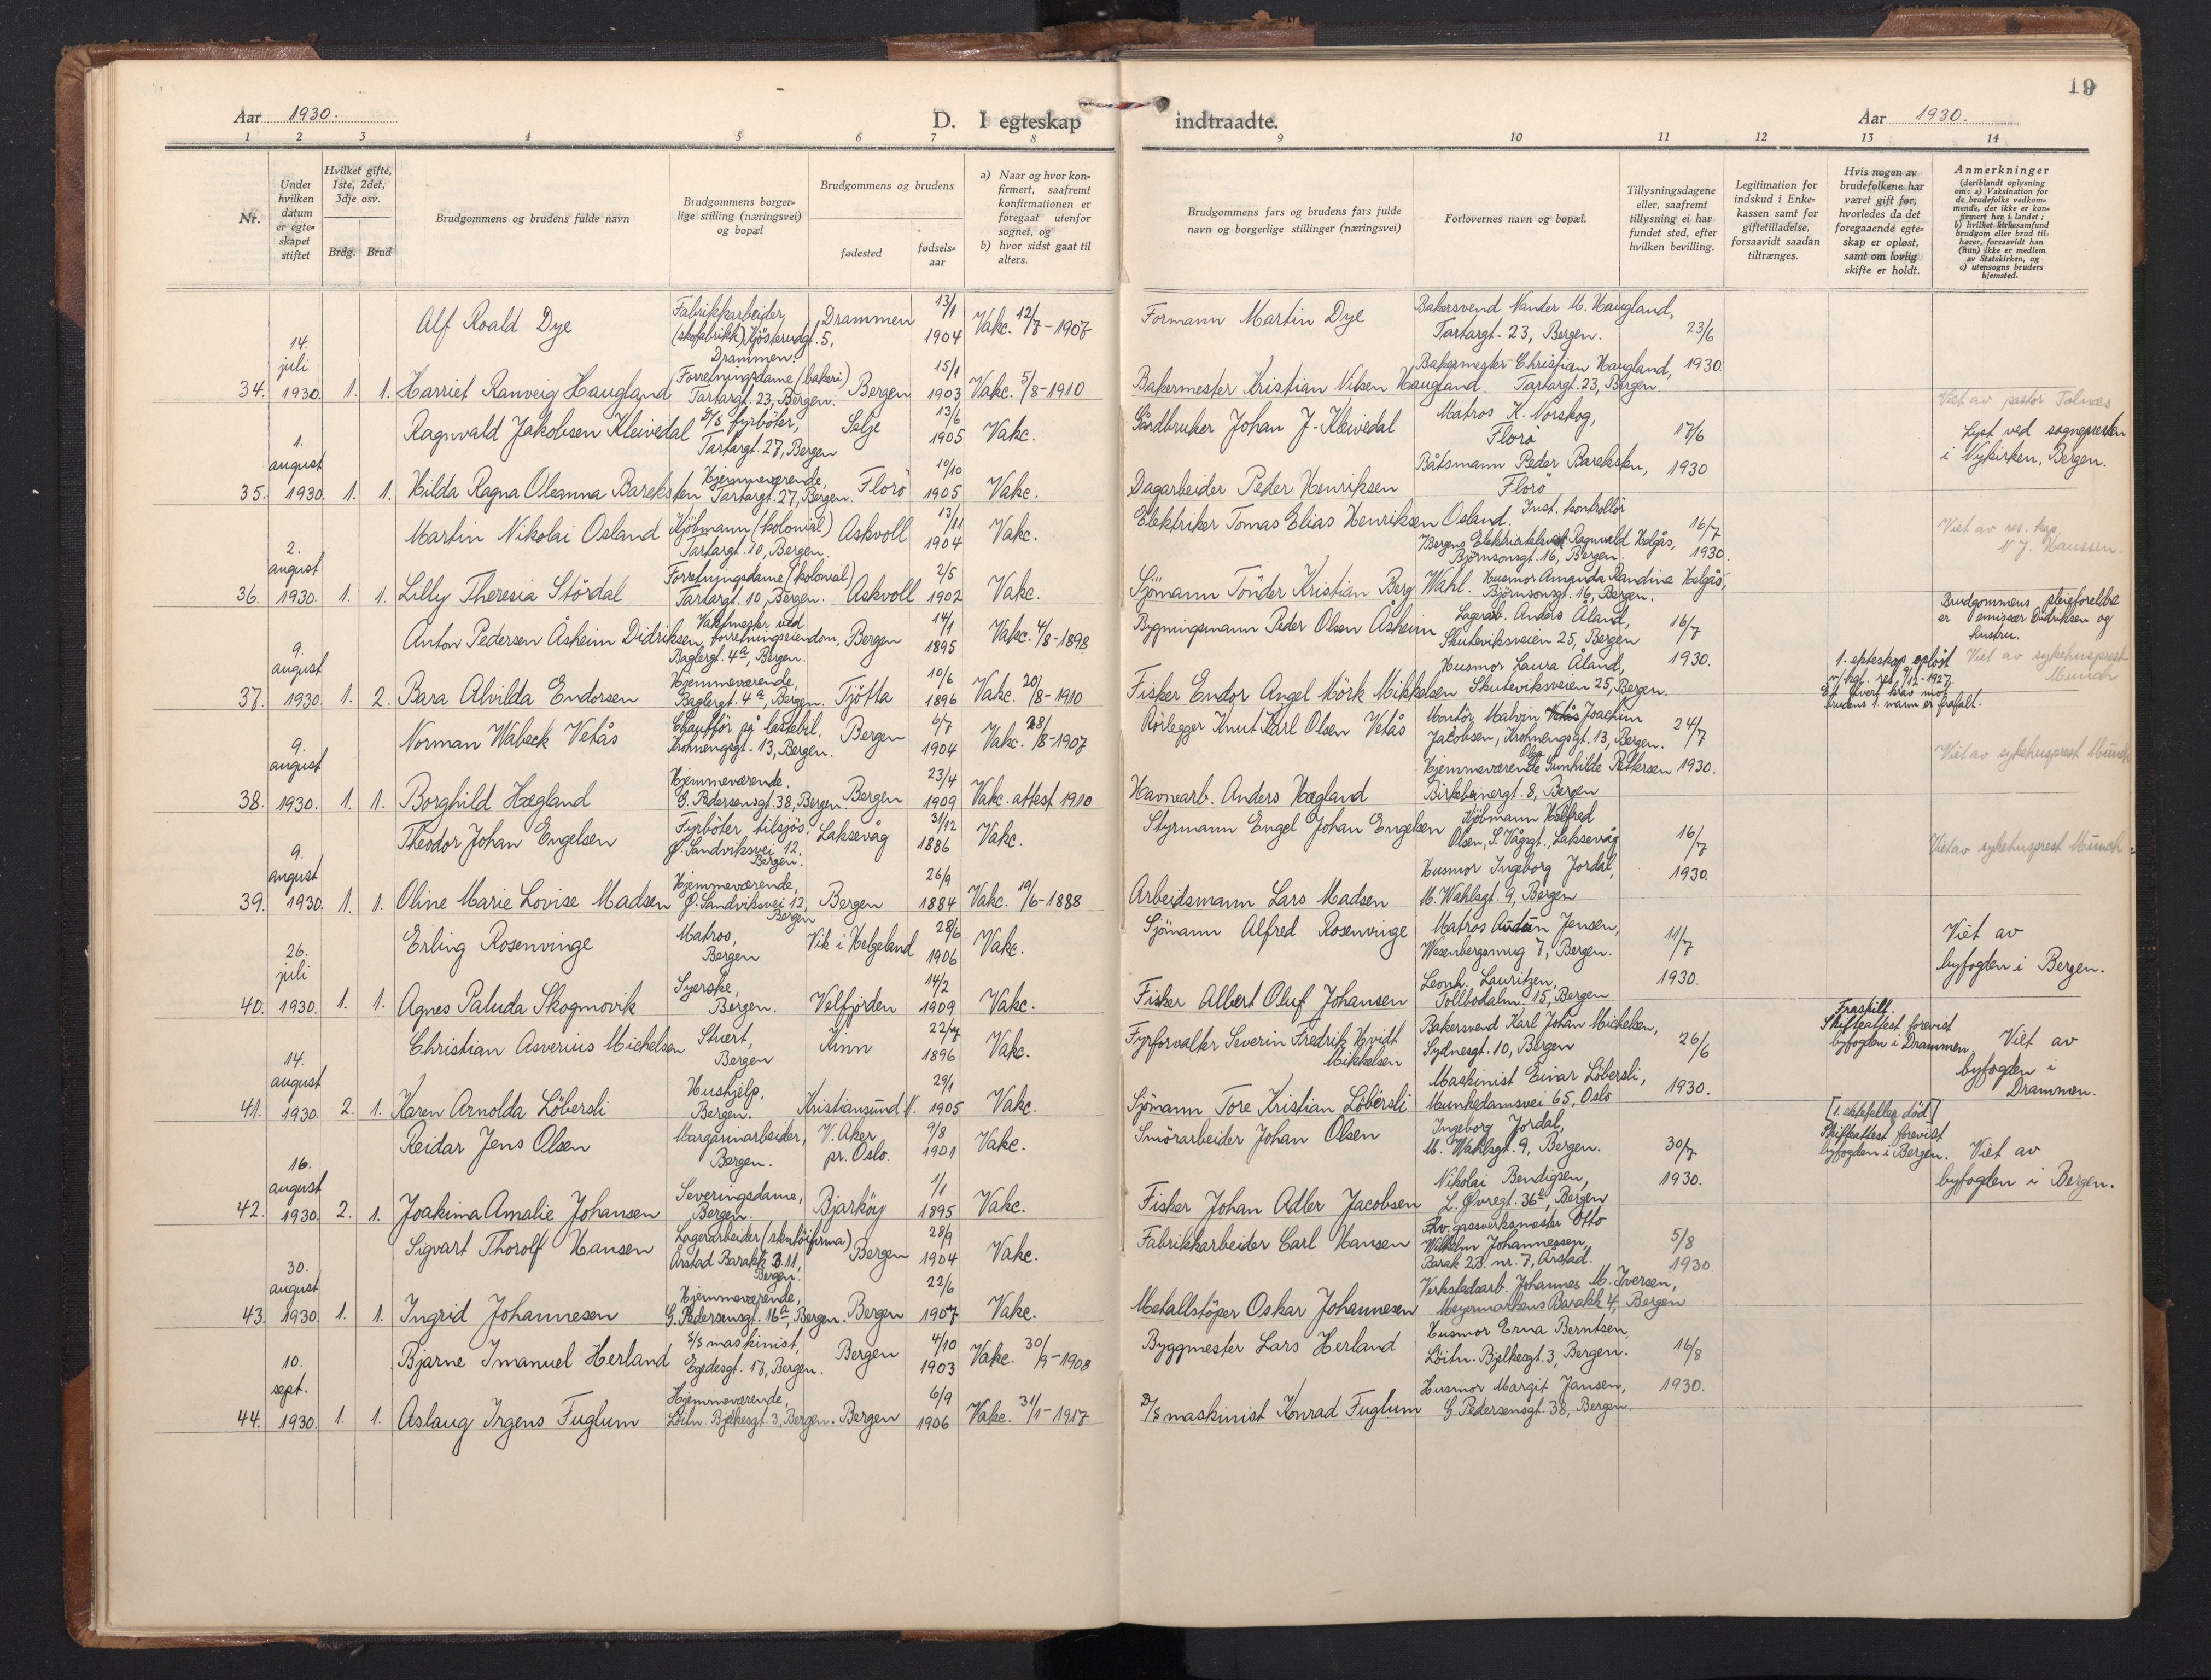 19
Aar 1930. D. I egteskap indtraadte. Aar 1930.
1 2 3 4 5 6 7 8 9 10 11 12 13 14
Nr.
Under hvilken datum er egteskapet stiftet
Hvilket gifte, 1ste, 2det, 3dje osv.
Brdg. Brud
Brudgommens og brudens fulde navn
Brudgommens borgerlige stilling (næringsvei) og bopæl
Brudgommens og brudens
fødested
fødselsaar
a) Naar og hvor konfirmert, saafremt konfirmationen er foregaat utenfor sognet, og
b) hvor sidst gaat til alters.
Brudgommens fars og brudens fars fulde navn og borgerlige stillinger (næringsvei)
Forlovernes navn og bopæl.
Tillysningsdagene eller, saafremt tillysning ei har fundet sted, efter hvilken bevilling.
Legitimation for indskud i Enkekassen samt for giftetilladelse, forsaavidt saadan tiltrænges.
Hvis nogen av brudefolkene har været gift før, hvorledes da det foregaaende egteskap er opløst, samt om lovlig skifte er holdt.
Anmerkninger
(deriblandt oplysning om: a) Vaksination for de brudefolks vedkommende, der ikke er konfirmert her i landet; b) hvilket kirkesamfund brudgom eller brud tilhører, forsaavidt han (hun) ikke er medlem av Statskirken, og c) utensogns bruders hjemsted.
34. 14. juli 1930. 1. 1.
Alf Roald Dye
Fabrikkarbeider (skofabrikk) Kjösterudgt. 5, Drammen.
Drammen 13/1 1904 Vakc. 12/7-1907
Formann Martin Dye
Bakersvend Nander M. Haugland, Tartargt. 23, Bergen.
23/6 1930.
Harriet Ranveig Haugland
Forretningsdame (bakeri) Tartargt. 23, Bergen.
Bergen 15/1 1903 Vakc. 5/8-1910
Bakermester Kristian Nilsen Haugland.
Bakermester Christian Haugland, Tartargt. 23, Bergen.
35. 1. august 1930. 1. 1.
Ragnvald Jakobsen Kleivedal
D/S fyrböter, Tartargt. 27, Bergen
Selje 13/6 1905 Vakc.
Gårdbruker Johan J. Kleivedal
Matros K. Norskog, Florö
17/6 1930
Viet av pastor Tolnæs
Lyst ved sognepresten i Nykirken, Bergen.
Hilda Ragna Oleanna Bareksten
Hjemmeværende, Tartargt. 27, Bergen.
Florö 10/10 1905 Vakc.
Dagarbeider Peder Henriksen
Båtsmann Peder Bareksten, Florö
36. 2. august 1930. 1. 1.
Martin Nikolai Osland
Kjöbmann (kolonial) Tartargt. 10, Bergen.
Askvoll 13/11 1904 Vakc.
Elektriker Tomas Elias Henriksen Osland.
Inst. kontrollör Bergens Elektricitetsverk Ragnvald Helgås, Bjørnsonsgt. 16, Bergen.
16/7 1930.
Viet av res. kap. N J. Hanssen.
Lilly Theresia Stördal
Forretningsdame (kolonial) Tartargt. 10, Bergen.
Askvoll 2/5 1902 Vakc.
Sjömann Tönder Kristian Berg Wahl.
Husmor Amanda Randina Helgås, Bjørnsonsgt. 16, Bergen.
37. 9. august 1930. 1. 2.
Anton Pedersen Åsheim Didriksen
Vaktmester ved forretningseiendom, Baglergt. 4a, Bergen.
Bergen 14/1 1895 Vakc. 4/8-1898
Bygningsmann Peder Olsen Åsheim
Lagerarb. Anders Åland, Skuteviksveien 25, Bergen
16/7 1930.
Brudgommens pleieforeldre er Didriksen og hustru.
Bara Alvilda Endorsen
Hjemmeværende, Baglergt. 4a, Bergen.
Tjötta 10/6 1896 Vakc. 20/8-1910
Fisker Endor Angel Mörk Mikkelsen
Husmor Laura Åland, Skuteviksveien 25, Bergen.
1. ekteskap oplöst v/ kgl. res. 9/12-1927. Ethvert krav mot brudens 1. mann er frafalt.
Viet av sykehusprest Munch
38. 9. august 1930. 1. 1.
Norman Wabeck Vetås
Chauffør på lastebil, Krohnengsgt. 13, Bergen.
Bergen 6/7 1904 Vakc. 28/8-1907
Rørlegger Knut Karl Olsen Vetås
Montör Malvin Vetås Joachim Jacobsen, Krohnengsgt. 13, Bergen.
24/7 1930.
Viet av sykehusprest Munch
Borghild Hægland
Hjemmeværende. G. Pedersensgt. 38, Bergen.
Bergen 23/4 1909 Vakc. attest 1910
Havnearb. Anders Hægland
Hjemmeværende Olga Gunhilde Pettersen Birkebeinergt. 8, Bergen
39. 9. august 1930. 1. 1.
Theodor Johan Engelsen
Fyrböter tilsjös, Ø. Sandviksvei 12, Bergen.
Laksevåg 31/12 1886 Vakc.
Styrmann Engel Johan Engelsen
Kjöbmann Halfred Olsen, S. Vågsgt., Laksevåg
16/7 1930.
Viet av sykehusprest Munch
Oline Marie Lovise Madsen
Hjemmeværende, Ø. Sandviksvei 12, Bergen
Bergen 26/9 1884 Vakc. 19/6-1888
Arbeidsmann Lars Madsen
Husmor Ingeborg Jordal, M. Wahlsgt. 9, Bergen
40. 26. juli 1930. 1. 1.
Erling Rosenvinge
Matros, Bergen
Vik i Helgeland 28/6 1906 Vakc.
Sjömann Alfred Rosenvinge
Matros Audun Jensen, Wesenbergsmug 7, Bergen.
11/7 1930.
Viet av byfogden i Bergen.
Agnes Paluda Skogmovik
Syerske, Bergen.
Velfjorden 14/2 1909 Vakc.
Fisker Albert Oluf Johansen
Leonh. Lauritzen, Tollbodalm. 15, Bergen
41. 14. august 1930. 2. 1.
Christian Asverius Michelsen
Stuert, Bergen
Kinn 22/7 1896 Vakc.
Fyrforvalter Severin Fredrik Kvidt Mikkelsen
Bakersvend Karl Johan Michelsen, Sydnesgt. 10, Bergen
26/6 1930.
Fraskilt. Skifteattest forevist byfogden i Drammen.
Viet av byfogden i Drammen.
Karen Arnolda Löbersli
Hushjelp. Bergen.
Kristiansund N. 29/1 1905 Vakc.
Sjömann Tore Kristian Löbersli
Maskinist Einar Löbersli, Munkedamsvei 65, Oslo
42. 16. august 1930. 2. 1.
Reidar Jens Olsen
Margarinarbeider, Bergen.
V. Aker pr. Oslo. 9/8 1901 Vakc.
Smörarbeider Johan Olsen
Ingeborg Jordal, M. Wahlsgt. 9, Bergen.
30/7 1930.
[1. ektefelle död] Skifteattest forevist byfogden i Bergen.
Viet av byfogden i Bergen.
Joakima Amalie Johansen
Severingsdame, Bergen.
Bjarköy 1/1 1895 Vakc.
Fisker Johan Adler Jacobsen
Nikolai Bendigsen, L. Øvregt. 36a, Bergen
43. 30. august 1930. 1. 1.
Sigvart Thorolf Hansen
Lagerarbeider (skotöifirma) Årstad Barakk 3.11, Bergen.
Bergen 28/9 1904 Vakc.
Fabrikkarbeider Carl Hansen
Fhv. gassverksmester Otto Wilhelm Johannessen, Barak 22. nr. 7, Årstad.
5/8 1930.
Ingrid Johannesen
Hjemmeværende, G. Pedersensgt. 16a, Bergen.
Bergen 22/6 1907 Vakc.
Metallstöper Oskar Johannesen
Verkstedarb. Johannes M. Iversen, Meyermarkens Barakk 4, Bergen
44. 10. sept. 1930. 1. 1.
Bjarne Imanuel Herland
S/S maskinist, Egedesgt. 17, Bergen.
Bergen 4/10 1903 Vakc. 30/9-1908
Byggmester Lars Herland
Husmor Erna Berntsen, Löitn. Bjelkesgt. 3, Bergen.
16/8 1930.
Aslaug Irgens Fuglum
Hjemmeværende, Löitn. Bjelkesgt. 3, Bergen.
Bergen 6/9 1906 Vakc. 31/1-1917
D/S maskinist Konrad Fuglum
Husmor Margit Jansen, G. Pedersensgt. 38, Bergen.